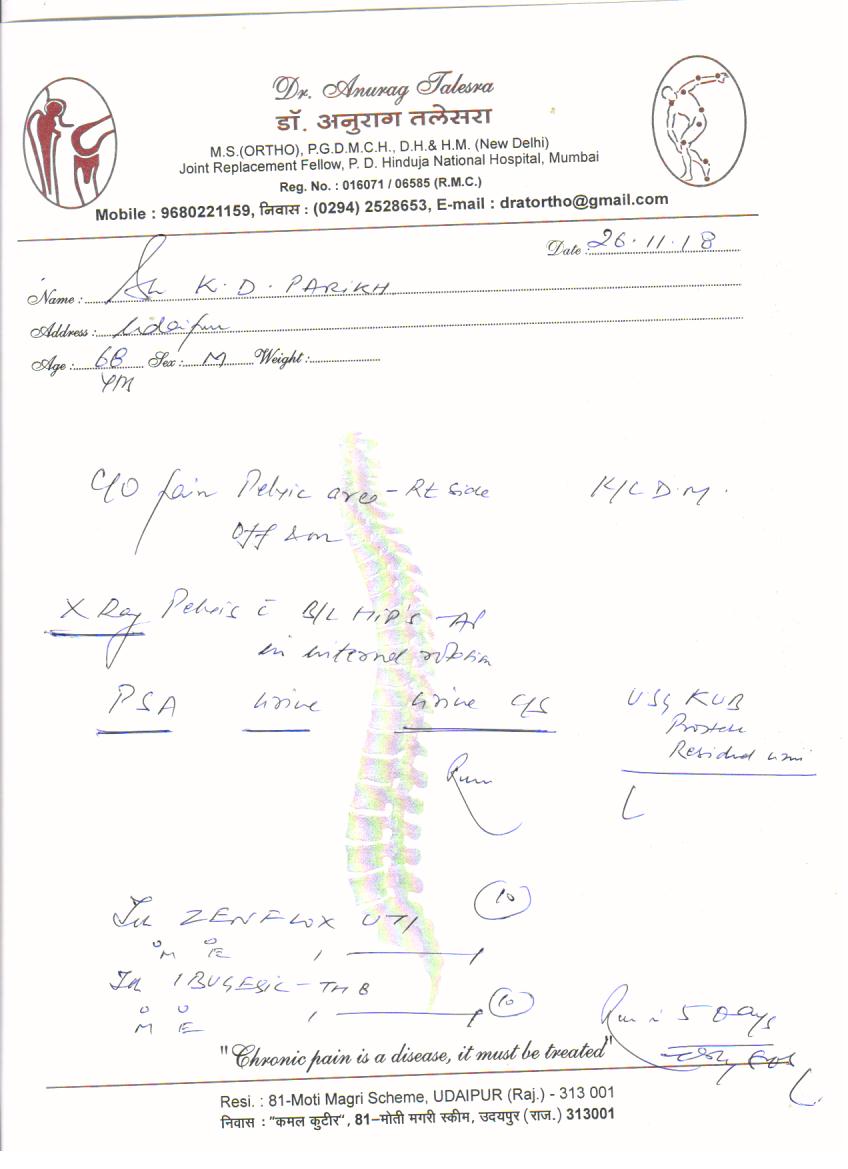 Dr. Anurag Talesra
डॉ. अनुराग तलेसरा
M.S.(ORTHO), P.G.D.M.C.H., D.H.& H.M. (New Delhi)
Joint Replacement Fellow, P. D. Hinduja National Hospital, Mumbai
Reg. No. : 016071 / 06585 (R.M.C.)
Mobile : 9680221159, निवास : (0294) 2528653, E-mail : dratortho@gmail.com
Date : 26.11.18
Name : Sh K.D. PARIKH
Address : Udaipur
Age : 68 Sex : M Weight :
C/O Pain Pelvic area - Rt side K/C D.M.
off & on
X Ray Pelvis c̄ B/L Hip's - AP
in internal rotation
PSA Urine Urine C/S USG KUB
Prostate
Residual
10
ZENFLOX UTI
M E
IBUGESIC - TH
10
M E
5 Days
"Chronic pain is a disease, it must be treated"
Resi. : 81-Moti Magri Scheme, UDAIPUR (Raj.) - 313 001
निवास : "कमल कुटीर", 81–मोती मगरी स्कीम, उदयपुर (राज.) 313001